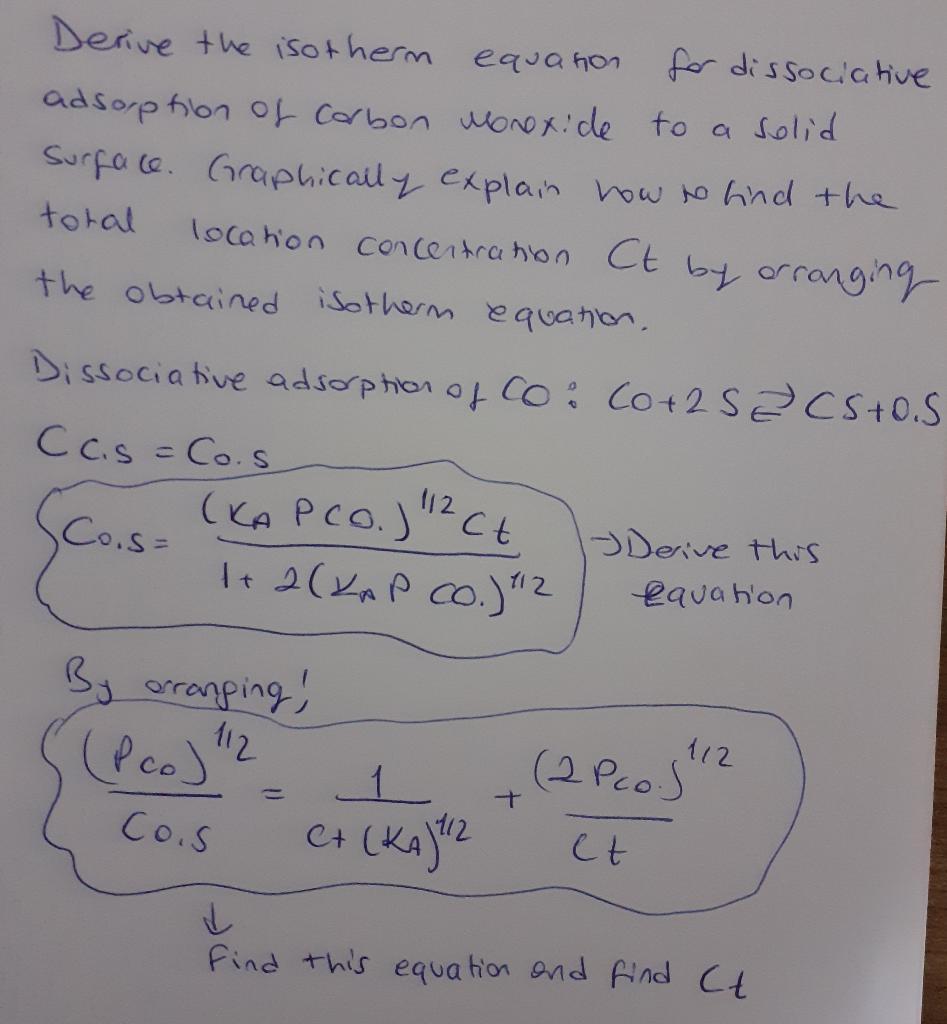 Derive the isotherm equation for dissociative
adsorption of Carbon Monoxide to a solid
Surface. Graphically explain how to find the
total location concentration Ct by arranging
the obtained isotherm equation.
Dissociative adsorption of CO: CO+2S⇌CS+O.S
CC.S = CO.S
CO.S = (KA PCO.)^1/2 Ct / 1+2(KAP CO.)^1/2 → Derive this equation
By arranging!
(PCO)^1/2 / CO.S = 1 / Ct (KA)^1/2 + (2PCO.)^1/2 / Ct
↓
Find this equation and find Ct